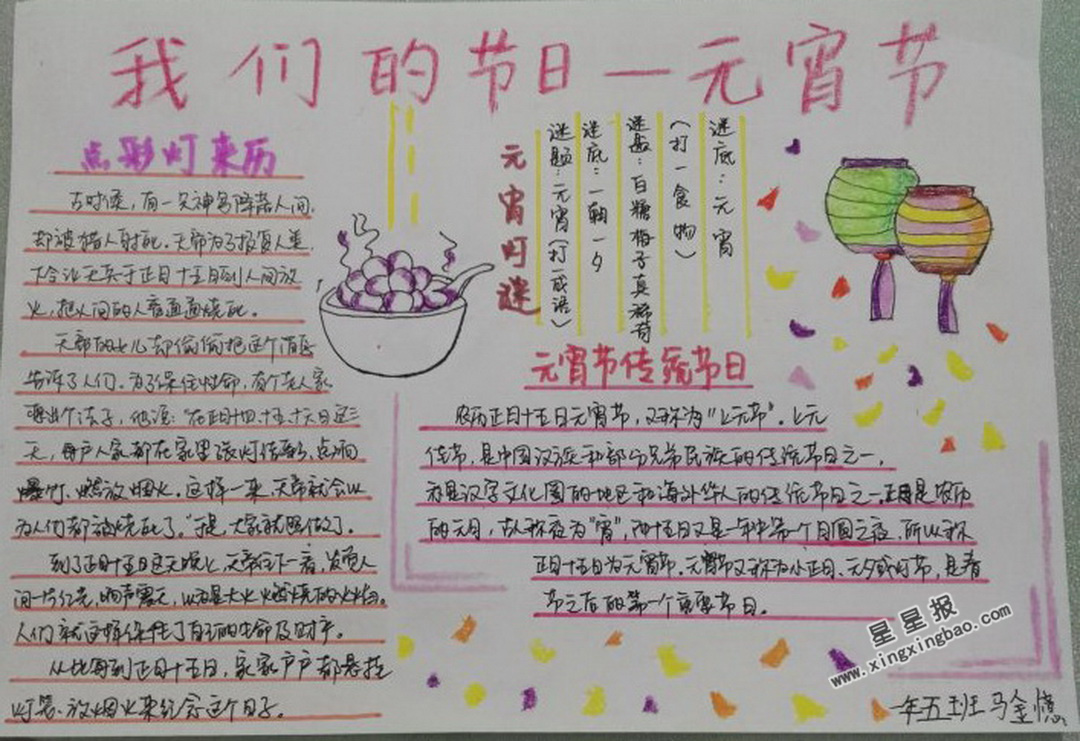 我们的节日—元宵节
点彩灯来历
古时候，有一只神鸟降落人间，
却被猎人射死。天帝为了报复人类，
下令让天兵于正月十五日到人间放
火，把人间的人畜通通烧死。
天帝的女儿却偷偷把这个消息
告诉了人们。为了保住性命，有个老人家
想出个法子，他说：“在正月十四、十五、十六日这三
天，每户人家都在家里张灯结彩，点响
爆竹，燃放烟火。这样一来，天帝就会以
为人们都被烧死了。”于是，大家就照做了。
到了正月十五日这天晚上，天帝往下一看，发觉人
间一片红光，响声震天，以为是大火燃烧的火焰。
人们就这样保住了自己的生命及财产。
从此每到正月十五日，家家户户都悬挂
灯笼、放烟火来纪念这个日子。
元宵灯谜
谜题：元宵（打一成语）
谜底：一朝一夕
谜题：白糖梅子真稀奇
（打一食物）
谜底：元宵
元宵节传统节日
农历正月十五日元宵节，又称为“上元节”。上元
佳节，是中国汉族和部分兄弟民族的传统节日之一，
亦是汉字文化圈的地区和海外华人的传统节日之一。正月是农历
的元月，古人称夜为“宵”，而十五日又是一年中第一个月圆之夜，所以称
正月十五日为元宵节。元宵节又称为小正月、元夕或灯节，是春
节之后的第一个重要节日。
星星报
www.xingxingbao.com
一年五班 马金